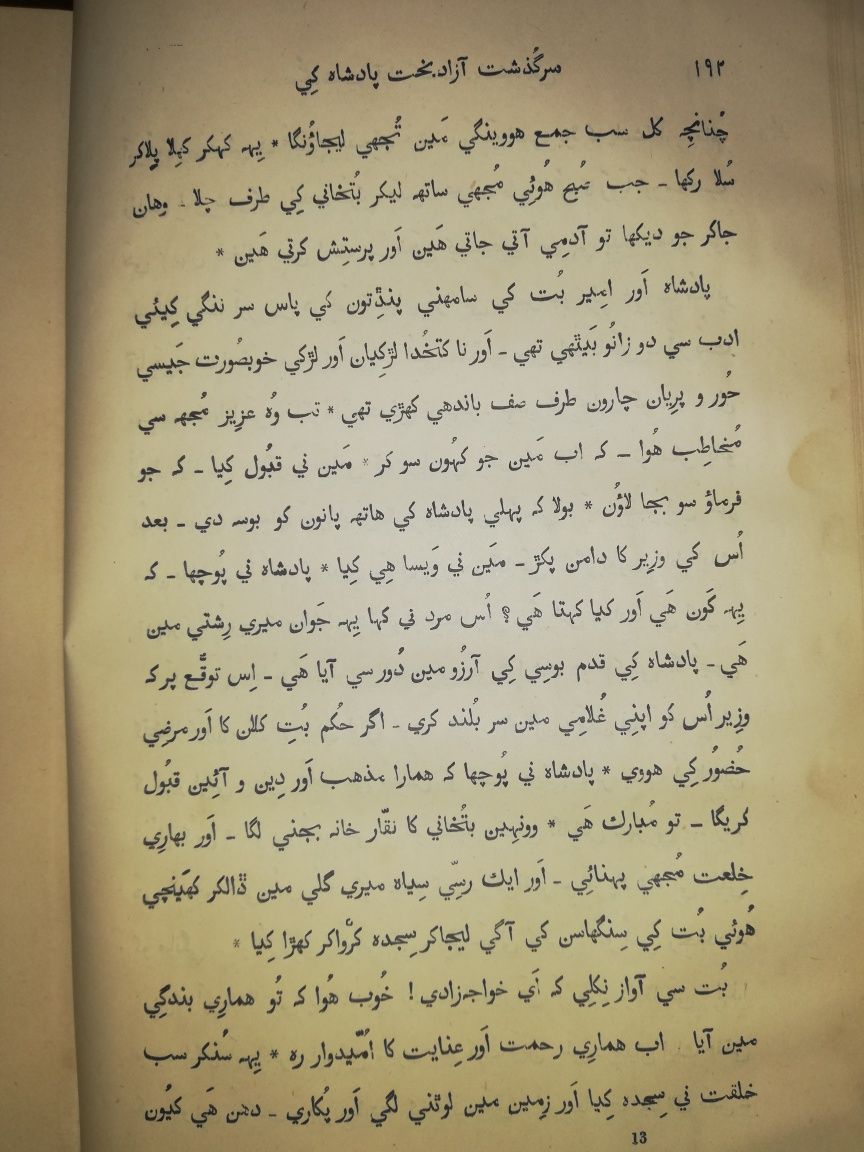 ۱۹۲ سرگُذشت آزاد بخت پادشاه کِي
چُنانچِہ کل سب جمع هووينگي مَين تُجھي ليجاؤنگا * يِہہ کہکر کہلا پِلاکر
سُلا رکھا ـ جب صُبح هُوئِي مُجھي ساتھہ ليکر بُتخاني کِي طرف چلا ـ وهان
جاکر جو ديکھا تو آدمِي آتي جاتي هَين اَور پرستِش کرتي هَين *
پادشاہ اَور امِير بُت کي سامھني پنڈِتون کي پاس سر ننگي کِيئي
ادب سي دو زانُو بَيٹھي تھي ـ اَور نا کتخُدا لڑکِيان اَور لڑکي خوبصُورت جَيسي
حُور و پرِيان چارون طرف صف باندھي کھڑي تھي * تب وُہ عزِيز مُجھہ سي
مُخاطِب هُوا ـ کہ اب مَين جو کہُون سو کر * مَين ني قبُول کِيا ـ کہ جو
فرماؤ سو بجا لاؤُن * بولا کہ پہلي پادشاہ کي هاتھہ پانون کو بوسہ دي ـ بعد
اُس کي وزِير کا دامن پکڑ ـ مَين ني وَيسا هِي کِيا * پادشاہ ني پُوچھا ـ کہ
يِہہ کَون هَي اَور کيا کہتا هَي ؟ اُس مرد ني کہا يِہہ جَوان ميري رِشتي مين
هَي ـ پادشاہ کِي قدم بوسِي کِي آرزُو مين دُور سي آيا هَي ـ اِس توقُّع پر کہ
وزِير اُس کو اپنِي غُلامِي مين سر بُلند کري ـ اگر حُکم بُتِ کلان کا اَور مرضِي
حُضُور کِي هووي * پادشاہ ني پُوچھا کہ همارا مذهب اَور دِين و آئِين قبُول
کريگا ـ تو مُبارك هَي * وونہِين بتُخاني کا نقّار خانہ بجني لگا ـ اَور بھارِي
خِلعت مُجھي پہنائِي ـ اَور ايك رسّي سِياہ ميري گلي مين ڈالکر کھَينچي
هُوئي بُت کِي سِنگھاسن کي آگي ليجاکر سِجدہ کرْواکر کھڑا کِيا *
بُت سي آواز نِکلِي کہ اَي خواجہزادي ! خُوب هُوا کہ تُو همارِي بندگِي
مين آيا ـ اب همارِي رحمت اَور عِنايت کا اُمّيدوار رہ * يِہہ سُنکر سب
خلقت ني سِجدہ کِيا اَور زِمين مين لوٹني لگي اَور پُکاري ـ دھن هَي کيُون
13